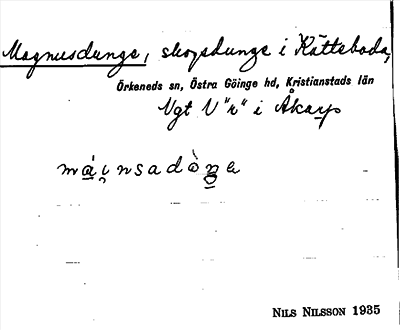 Magnusdunge, skogsdunge i Kätteboda,
Örkeneds sn, Östra Göinge hd, Kristianstads län
Vgt V "n" i Åkarp
NILS NILSSON 1935